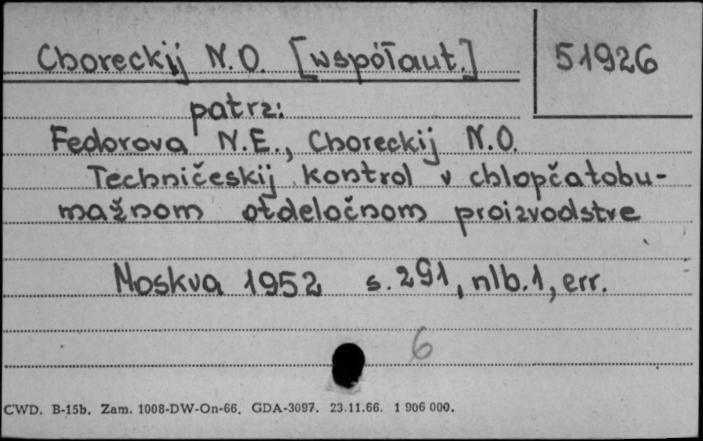 Choreckij N.O. [współaut.]
51926
patrz:
Fedorova N.E., Choreckij N.O.
Techničeskij kontrol v chlopčatobu-
mažnom otdeločnom proizvodstve
Moskva 1952 s. 291, nlb. 1, err.
6
CWD. B-15b. Zam. 1008-DW-On-66. GDA-3097. 23.11.66. 1 906 000.